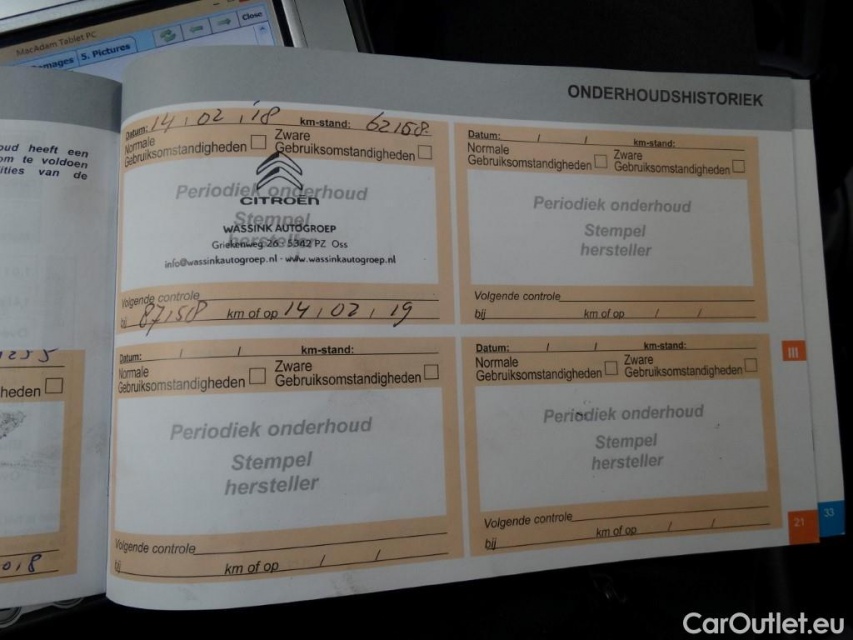 MacAdam Tablet PC
Close
5. Pictures
ONDERHOUDSHISTORIEK
oud heeft een
om te voldoen
ities van de
heden
Datum: 14 / 02 / '18 km-stand: 62158
Normale Gebruiksomstandigheden
Zware Gebruiksomstandigheden
Periodiek onderhoud
CITROËN
Stempel
WASSINK AUTOGROEP
hersteller
Griekenweg 26 - 5342 PZ Oss
info@wassinkautogroep.nl - www.wassinkautogroep.nl
Volgende controle
bij 87158 km of op 14 / 02 / 19
Datum: / / km-stand:
Normale Gebruiksomstandigheden
Zware Gebruiksomstandigheden
Periodiek onderhoud
Stempel
hersteller
Volgende controle
bij km of op / /
Datum: / / km-stand:
Normale Gebruiksomstandigheden
Zware Gebruiksomstandigheden
Periodiek onderhoud
Stempel
hersteller
Volgende controle
bij km of op / /
Datum: / / km-stand:
Normale Gebruiksomstandigheden
Zware Gebruiksomstandigheden
Periodiek onderhoud
Stempel
hersteller
Volgende controle
bij km of op / /
III
21
33
CarOutlet.eu